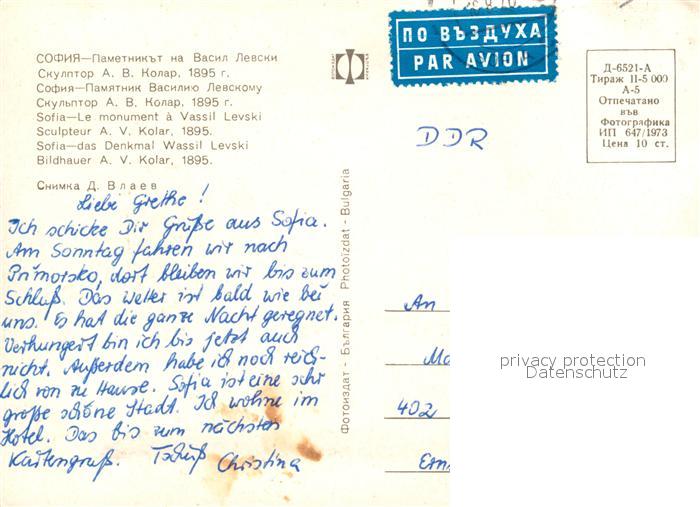 СОФИЯ—Паметникът на Васил Левски
Скулптор А. В. Колар, 1895 г.
София—Памятник Василию Левскому
Скульптор А. В. Колар, 1895 г.
Sofia—Le monument à Vassil Levski
Sculpteur A. V. Kolar, 1895.
Sofia—das Denkmal Wassil Levski
Bildhauer A. V. Kolar, 1895.
Снимка Д. Влаев
ПО ВЪЗДУХА
PAR AVION
Д-6521-А
Тираж II-5 000
А-5
Отпечатано
във
Фотографика
ИП 647/1973
Цена 10 ст.
DDR
Liebe Grethe!
Ich schicke Dir Grüße aus Sofia.
Am Sonntag fahren wir nach
Primorsko, dort bleiben wir bis zum
Schluß. Das Wetter ist bald wie bei
uns. Es hat die ganze Nacht geregnet.
Verhungert bin ich bis jetzt auch
nicht. Außerdem habe ich noch reich-
lich von zu Hause. Sofia ist eine sehr
große schöne Stadt. Ich wohne im
Hotel. Das bis zum nächsten
Kartengruß. Tschüß Christina
Фотоиздат - България Photoizdat - Bulgaria
An
Ma
402
Erns
privacy protection
Datenschutz